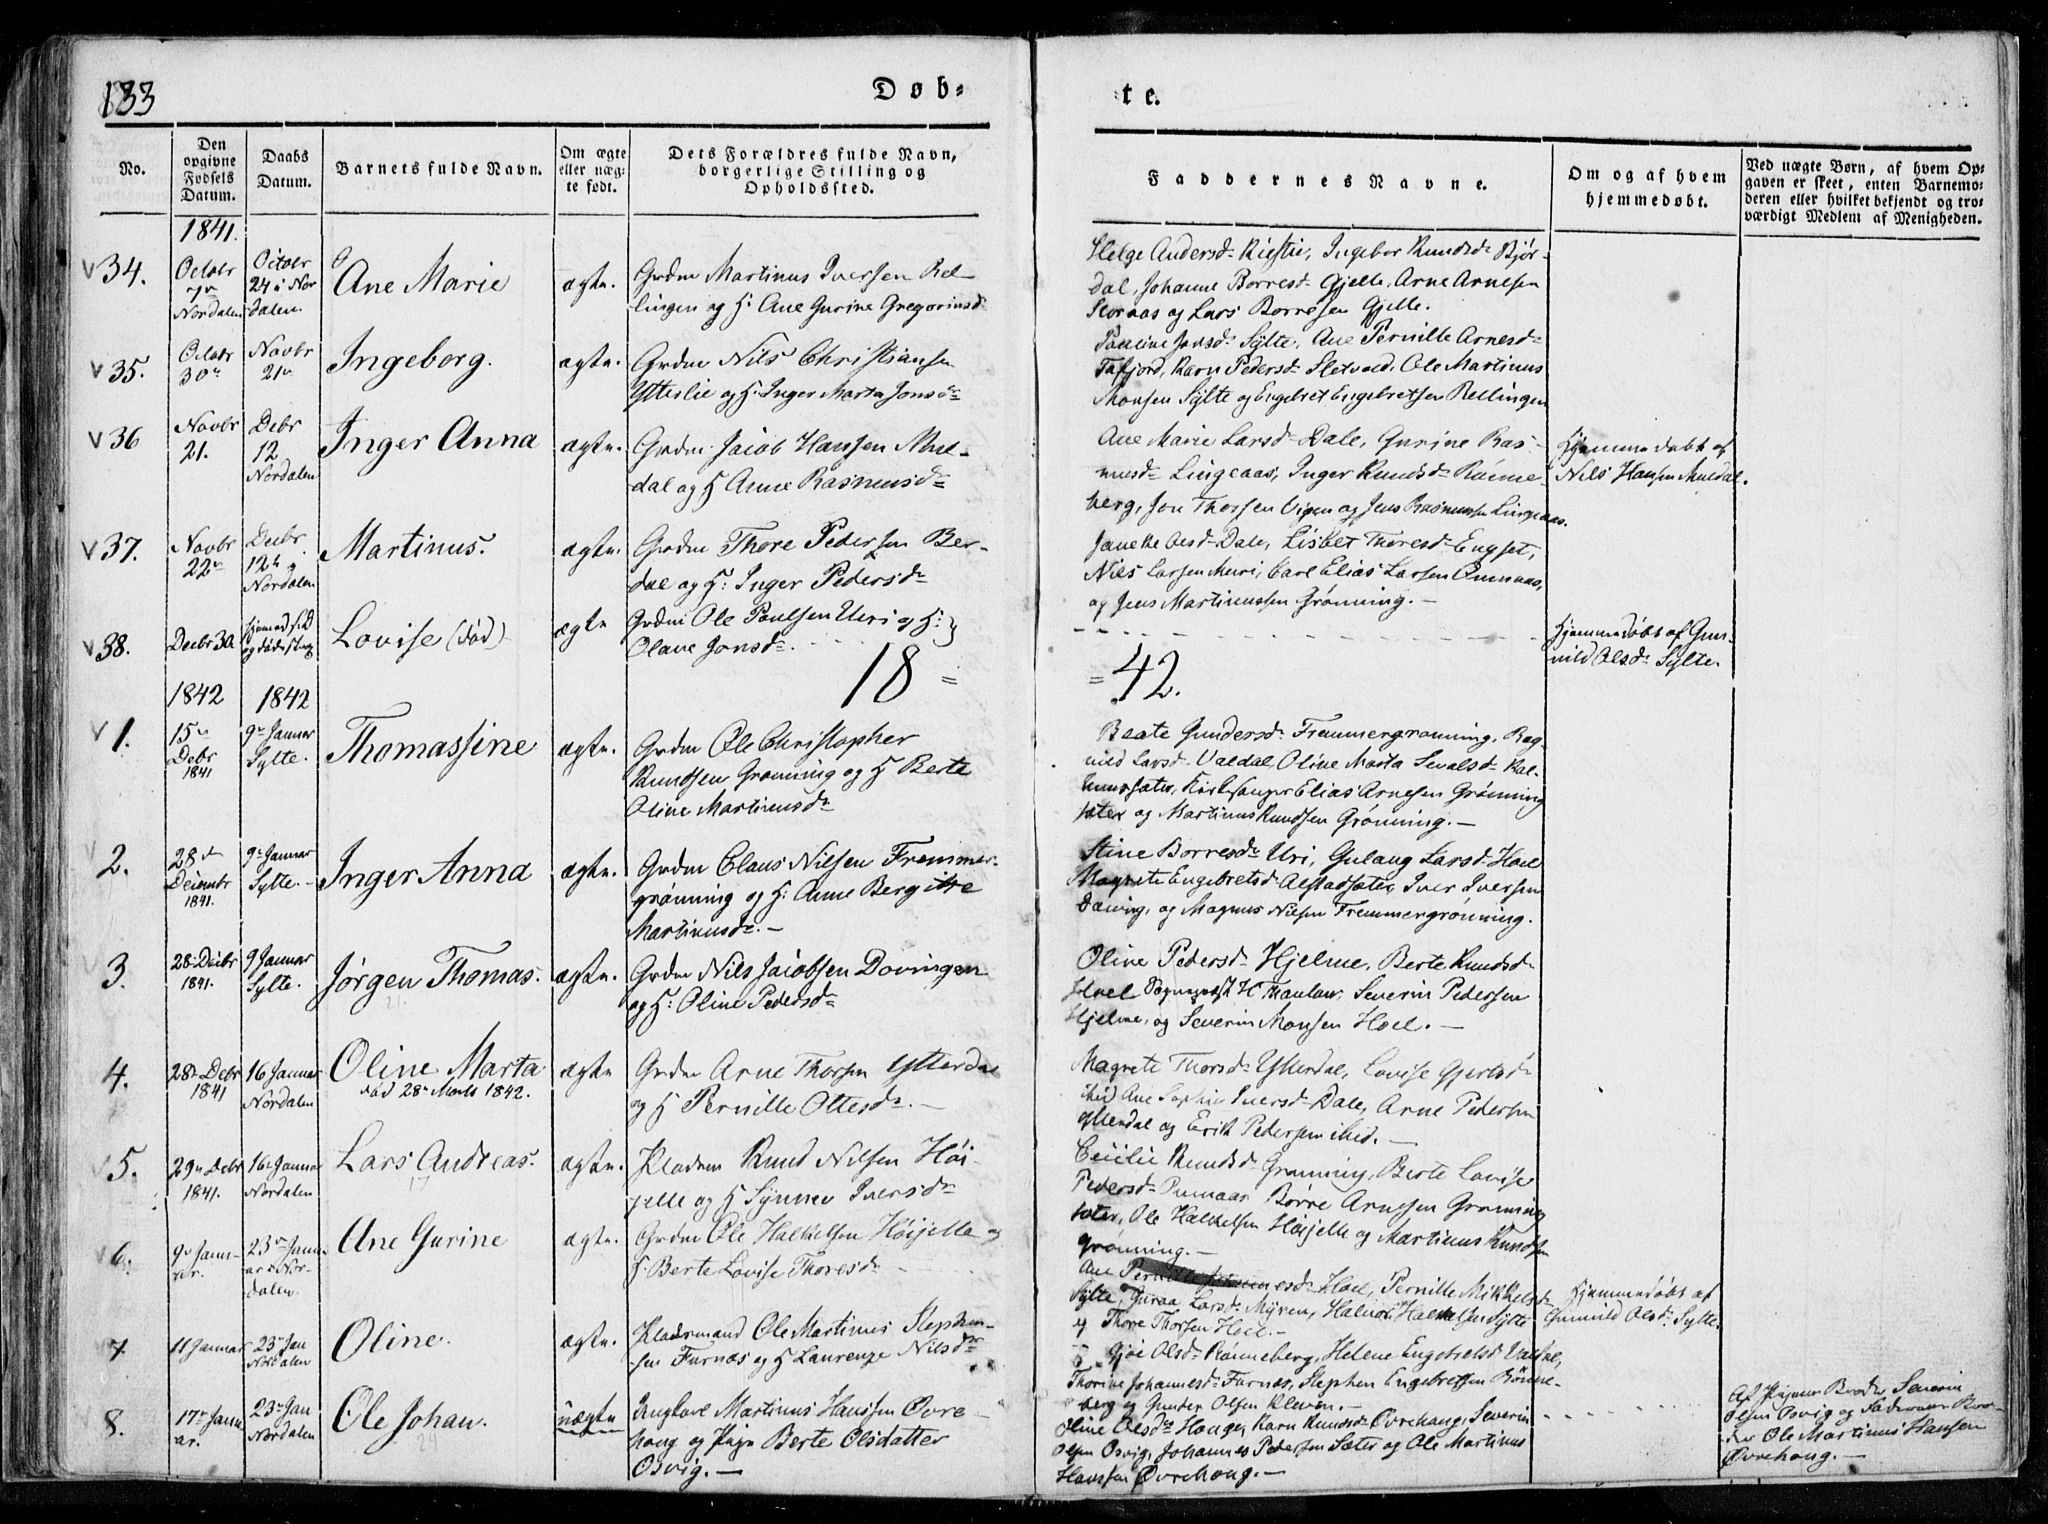 133
Døb=
te.
No.
Den opgivne Fødsels Datum.
Daabs Datum.
Barnets fulde Navn.
Om ægte eller uæg-te født.
Dets Forældres fulde Navn, borgerlige Stilling og Opholdssted.
Faddernes Navne.
Om og af hvem hjemmedøbt.
Ved uægte Børn, af hvem Op-gaven er skeet, enten Barnemo-deren eller hvilket bekjendt og tro-værdigt Medlem af Menigheden.
1841.
34.
Octobr
Nordalen
Octobr
24 i Nor
dalen.
Ane Marie
ægte.
Grdm Martinus Iversen Rel-
lingen og H: Ane Gurine Gregoriusd
Helge Andersd Ingebor Knudsd Bjør-
dal, Johanne Borresd Gjelle, Arne Arnesen
og Lars Borresen Gjelle.
35.
Octobr
30
Novbr
21
Ingeborg.
ægte.
Grdm Nils Christiansen
Ytterlie og H: Inger Marta Jonsd
Pauline Jonsd Sylte, Ane Pernille Arnesd
Tafjord, Karn Pedersd Sletvold, Ole Martinus
Monsen Sylte og Engebret Engebretsen Rellingen
36
Novbr
21.
Debr
12
Nordalen
Inger Anna
ægte.
Grdm Jacob Hansen Mul-
dal og H Anne Rasmusd
Ane Marie Larsd Dale, Gurine Ras-
musd Lingeaas, Inger Knudsd Rønne-
berg, Jon Thorsen Vigen og Jens Rasmussen Lingeaas.
Hjemmedøbt af
Nils Hansen Muldal.
37.
Novbr
22
Decbr
12
Nordalen
Martinus.
ægte.
Grdm Thore Pedersen Ber-
dal og H: Inger Pedersd
Olsd Dale, Lisbet Thoresd Engset,
Nils Larsen Muri, Carl Elias Larsen
og Jens Martinussen Grønning.
38.
Decbr 30
Lovise (død)
ægte
Grdm Ole Paulsen Uri og H:
Olave Jonsd
Hjemmedøbt af Gun-
nild Olsd Sylte.
1842
1842
18 =
= 42.
1.
15
Debr
1841
9 Januar
Sylte.
Thomassine
ægte.
Grdm Ole Christopher
Knudsen Grønning og H Berte
Oline Martinusd
Beate Gundersd Fremmergrønning, Rag-
nild Larsd Valdal, Oline Marta Sevalsd Kal-
Kirkesanger Elias Arnesen Grønning
sæter og Martinus Knudsen Grønning.
2.
28
Decembr
1841.
9 Januar
Sylte.
Inger Anna
ægte.
Grdm Claus Nilsen Fremmer-
grønning og H: Anne Bergitte
Martinusd
Stine Borresd Uri, Gulaug Larsd Hoel
Magrete Engebretsd Alstadsæter, Iver Iversen
Døving, og Magnus Nilsen Fremmergrønning.
3.
28 Decbr
1841.
9 Januar
Sylte.
Jørgen Thomas.
ægte.
Grdm Nils Jacobsen Dovingen
og H: Oline Pedersd
Oline Pedersd Hjelme, Berte Knudsd
Hoel H Thaulow, Severin Pedersen
Hjelme, og Severin Monsen Hoel.
4.
28 Debr
1841
16 Januar
Nordalen
Oline Marta
død 28 Marts 1842.
ægte
Grdm Arne Thorsen Ytterdal
og H Pernille Ottesd
Magrete Thorsd Ytterdal, Lovise Gjertsd
ibid Ane Sophie Iversd Dale, Arne Pedersen
Ytterdal og Erik Pedersen ibid.
5.
29 Debr
1841.
16 Januar
Nordalen
Lars Andreas.
ægte.
Pladsm Knud Nilsen Høi-
jelle og H Synnev Iversd
Cecilie Knudsd Grønning, Berte Lovise
Pedersd Børre Arnesen Grønning
sæter, Ole Halkelsen Høijelle og Martinus Knudsen
Grønning.
6.
9 Janu-
ar.
23 Janu-
ar Nor-
dalen.
Ane Gurine
ægte.
Grdm Ole Halkelsen Høijelle og
H Berte Lovise Thoresd
Ane Pernille Hoel, Pernille Mikkelsd
Sylte, Guraa Larsd Myren, Halvor Halkelsen Sylte
og Thore Thorsen Hoel.
Hjemmedøbt af
Gunnild Olsd Sylte.
7.
11 Januar
23 Jan
Nordalen
Oline.
ægte.
Pladsmand Ole Martinus Stephen-
sen Furnæs og H Laurenze Nilsd
Olsd Rønneberg, Helene Engebretsd Valdal,
Thorine Johannesd Furnæs, Stephen Engebretsen Rønne-
berg og Gunder Olsen Kleven.
8.
17 Janu-
ar.
23 Jan
Nordalen
Ole Johan.
uægte
Ungkarl Martinus Hanssen Øvre
houg og Pige Berte Olsdatter
Osvig.
Oline Olsd Houge, Karn Knudsd Øvrehoug, Severin
Olsen Osvig, Johannes Pedersen Sæter og Ole Martinus
Hanssen Øvrehoug.
Af Pigens Broder Severin
Olsen Osvig og Faderens Bro-
der Ole Martinus Hansen
Øvrehoug.